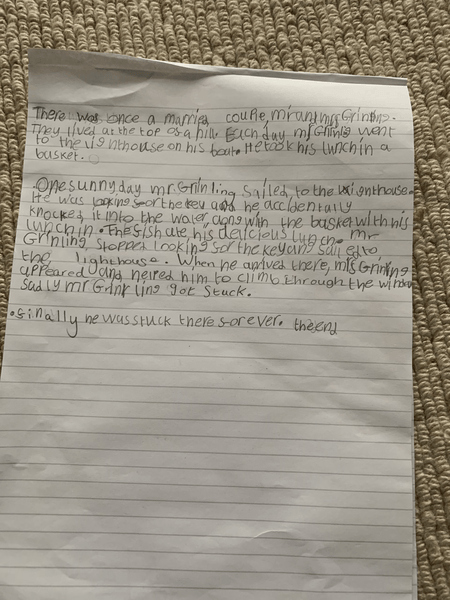 There was once a married couple, mr and mrs Grinling.
They lived at the top of a hill. Each day mr Grinling went
to the lighthouse on his boat. He took his lunch in a
basket.
One sunny day mr. Grinling sailed, to the lighthouse.
He was looking for the key and he accidentally
knocked, it into the water, along with the basket with his
lunch in. The fish ate, his delicious lunch. mr
Grinling, stopped looking for the key and sailed to
the lighthouse. When he arrived there, mrs Grinling
appeared and helped him to climb through the window
sadly mr Grinling got stuck.
.finally he was stuck there forever. the end